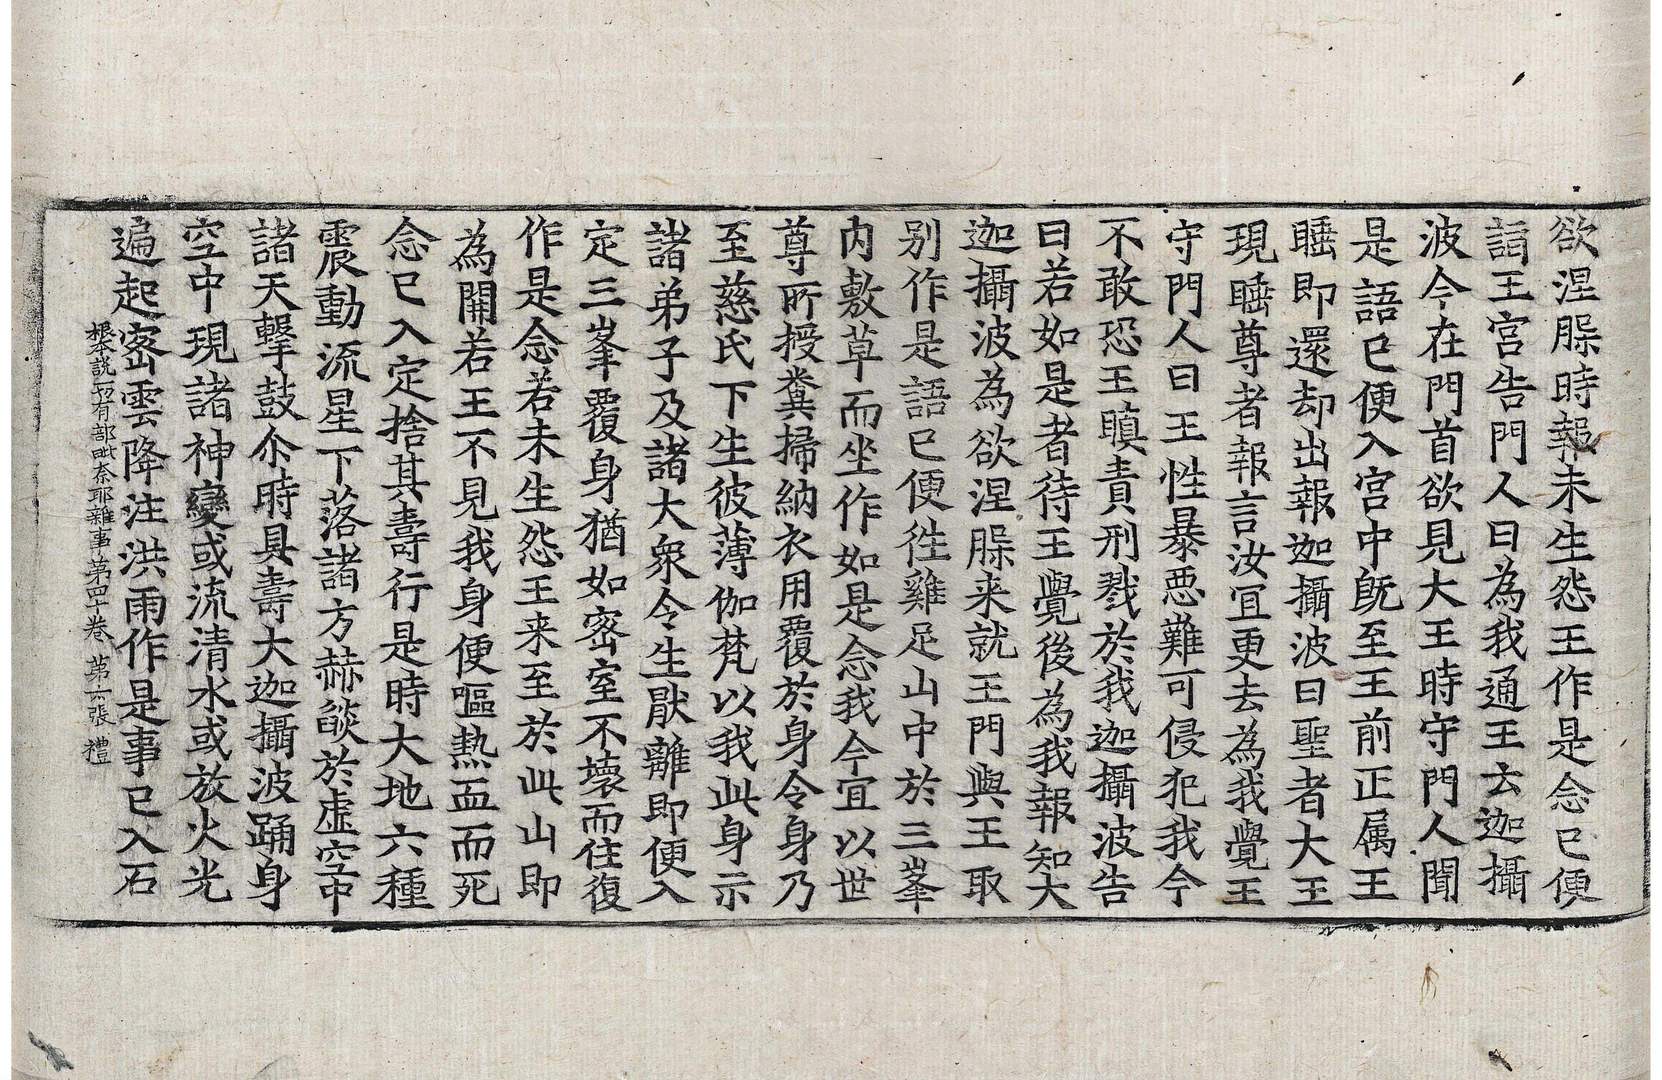 欲涅槃時報未生怨王作是念已便
詣王宮告門人曰為我通王云迦攝
波今在門首欲見大王時守門人聞
是語已便入宮中旣至王前正属王
睡即還却出報迦攝波曰聖者大王
現睡尊者報言汝宜更去為我覺王
守門人曰王性暴惡難可侵犯我今
不敢恐王瞋責刑戮於我迦攝波告
曰若如是者待王覺後為我報知大
迦攝波為欲涅槃来就王門與王取
別作是語已便往雞足山中於三峯
内敷草而坐作如是念我今宜以世
尊所授糞掃納衣用覆於身令身乃
至慈氏下生彼薄伽梵以我此身示
諸弟子及諸大衆令生猒離即便入
定三峯覆身猶如密室不壞而住復
作是念若未生怨王来至於此山即
為開若王不見我身便嘔熱血而死
念已入定捨其壽行是時大地六種
震動流星下落諸方赫焰於虛空中
諸天擊鼓尒時具壽大迦攝波踊身
空中現諸神變或流清水或放火光
遍起密雲降注洪雨作是事已入石
根本說一切有部毗奈耶雜事第四十卷 第六張 禮